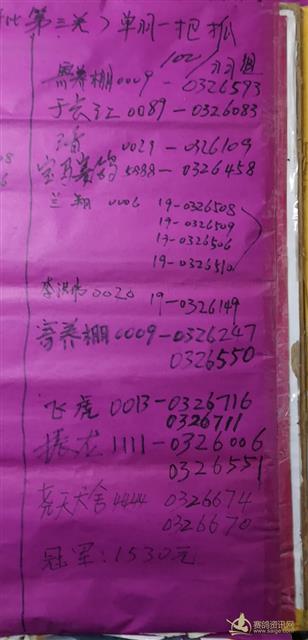 第三关）单羽一把抓
100/羽组
寄养棚0009-0326593
于云江0089-0326083
0029-0326109
宝马赛鸽5888-0326458
兰翔 0006 19-0326508
19-0326509
19-0326506
19-0326510
李洪 0020 19-0326149
寄养棚0009-0326247
0326550
飞虎0013-0326716
0326711
振龙1111-0326006
0326551
尧天大舍4444 0326674
0326670
冠军:1530元
赛鸽资讯网
www.saige.com